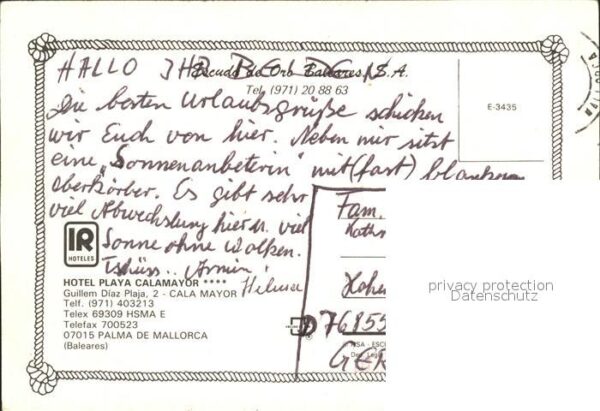 HALLO IHR BEIDEN
Escudo de Oro Baleares, S.A.
Tel. (971) 20 88 63
E-3435
Die besten Urlaubsgrüße schicken
wir Euch von hier. Neben mir sitzt
eine "Sonnenanbeterin" mit (fast) blankem
Oberkörber. Es gibt sehr
viel Abwechslung hier u. viel
Sonne ohne Wolken.
Tschüss.. Armin
Helmar
IR
HOTELES
HOTEL PLAYA CALAMAYOR ****
Guillem Díaz Plaja, 2 - CALA MAYOR
Telf. (971) 403213
Telex 69309 HSMA E
Telefax 700523
07015 PALMA DE MALLORCA
(Baleares)
Fam.
Kath
Hohe
D 76855
GER
privacy protection
Datenschutz